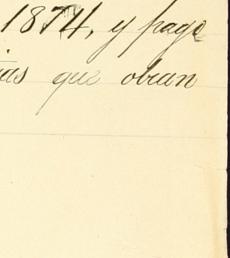 1874, y pago
que obran